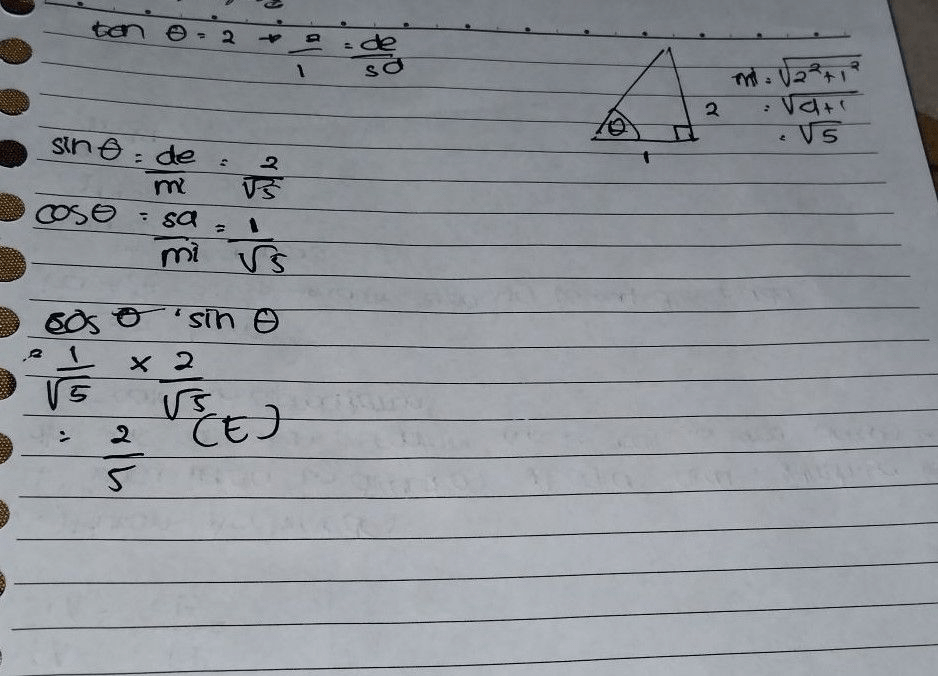 tan θ = 2 → 2/1 = de/sa
mi = √2²+1²
= √4+1
= √5
θ
2
1
sin θ = de/mi = 2/√5
cos θ = sa/mi = 1/√5
cos θ · sin θ
= 1/√5 × 2/√5
= 2/5 (E)